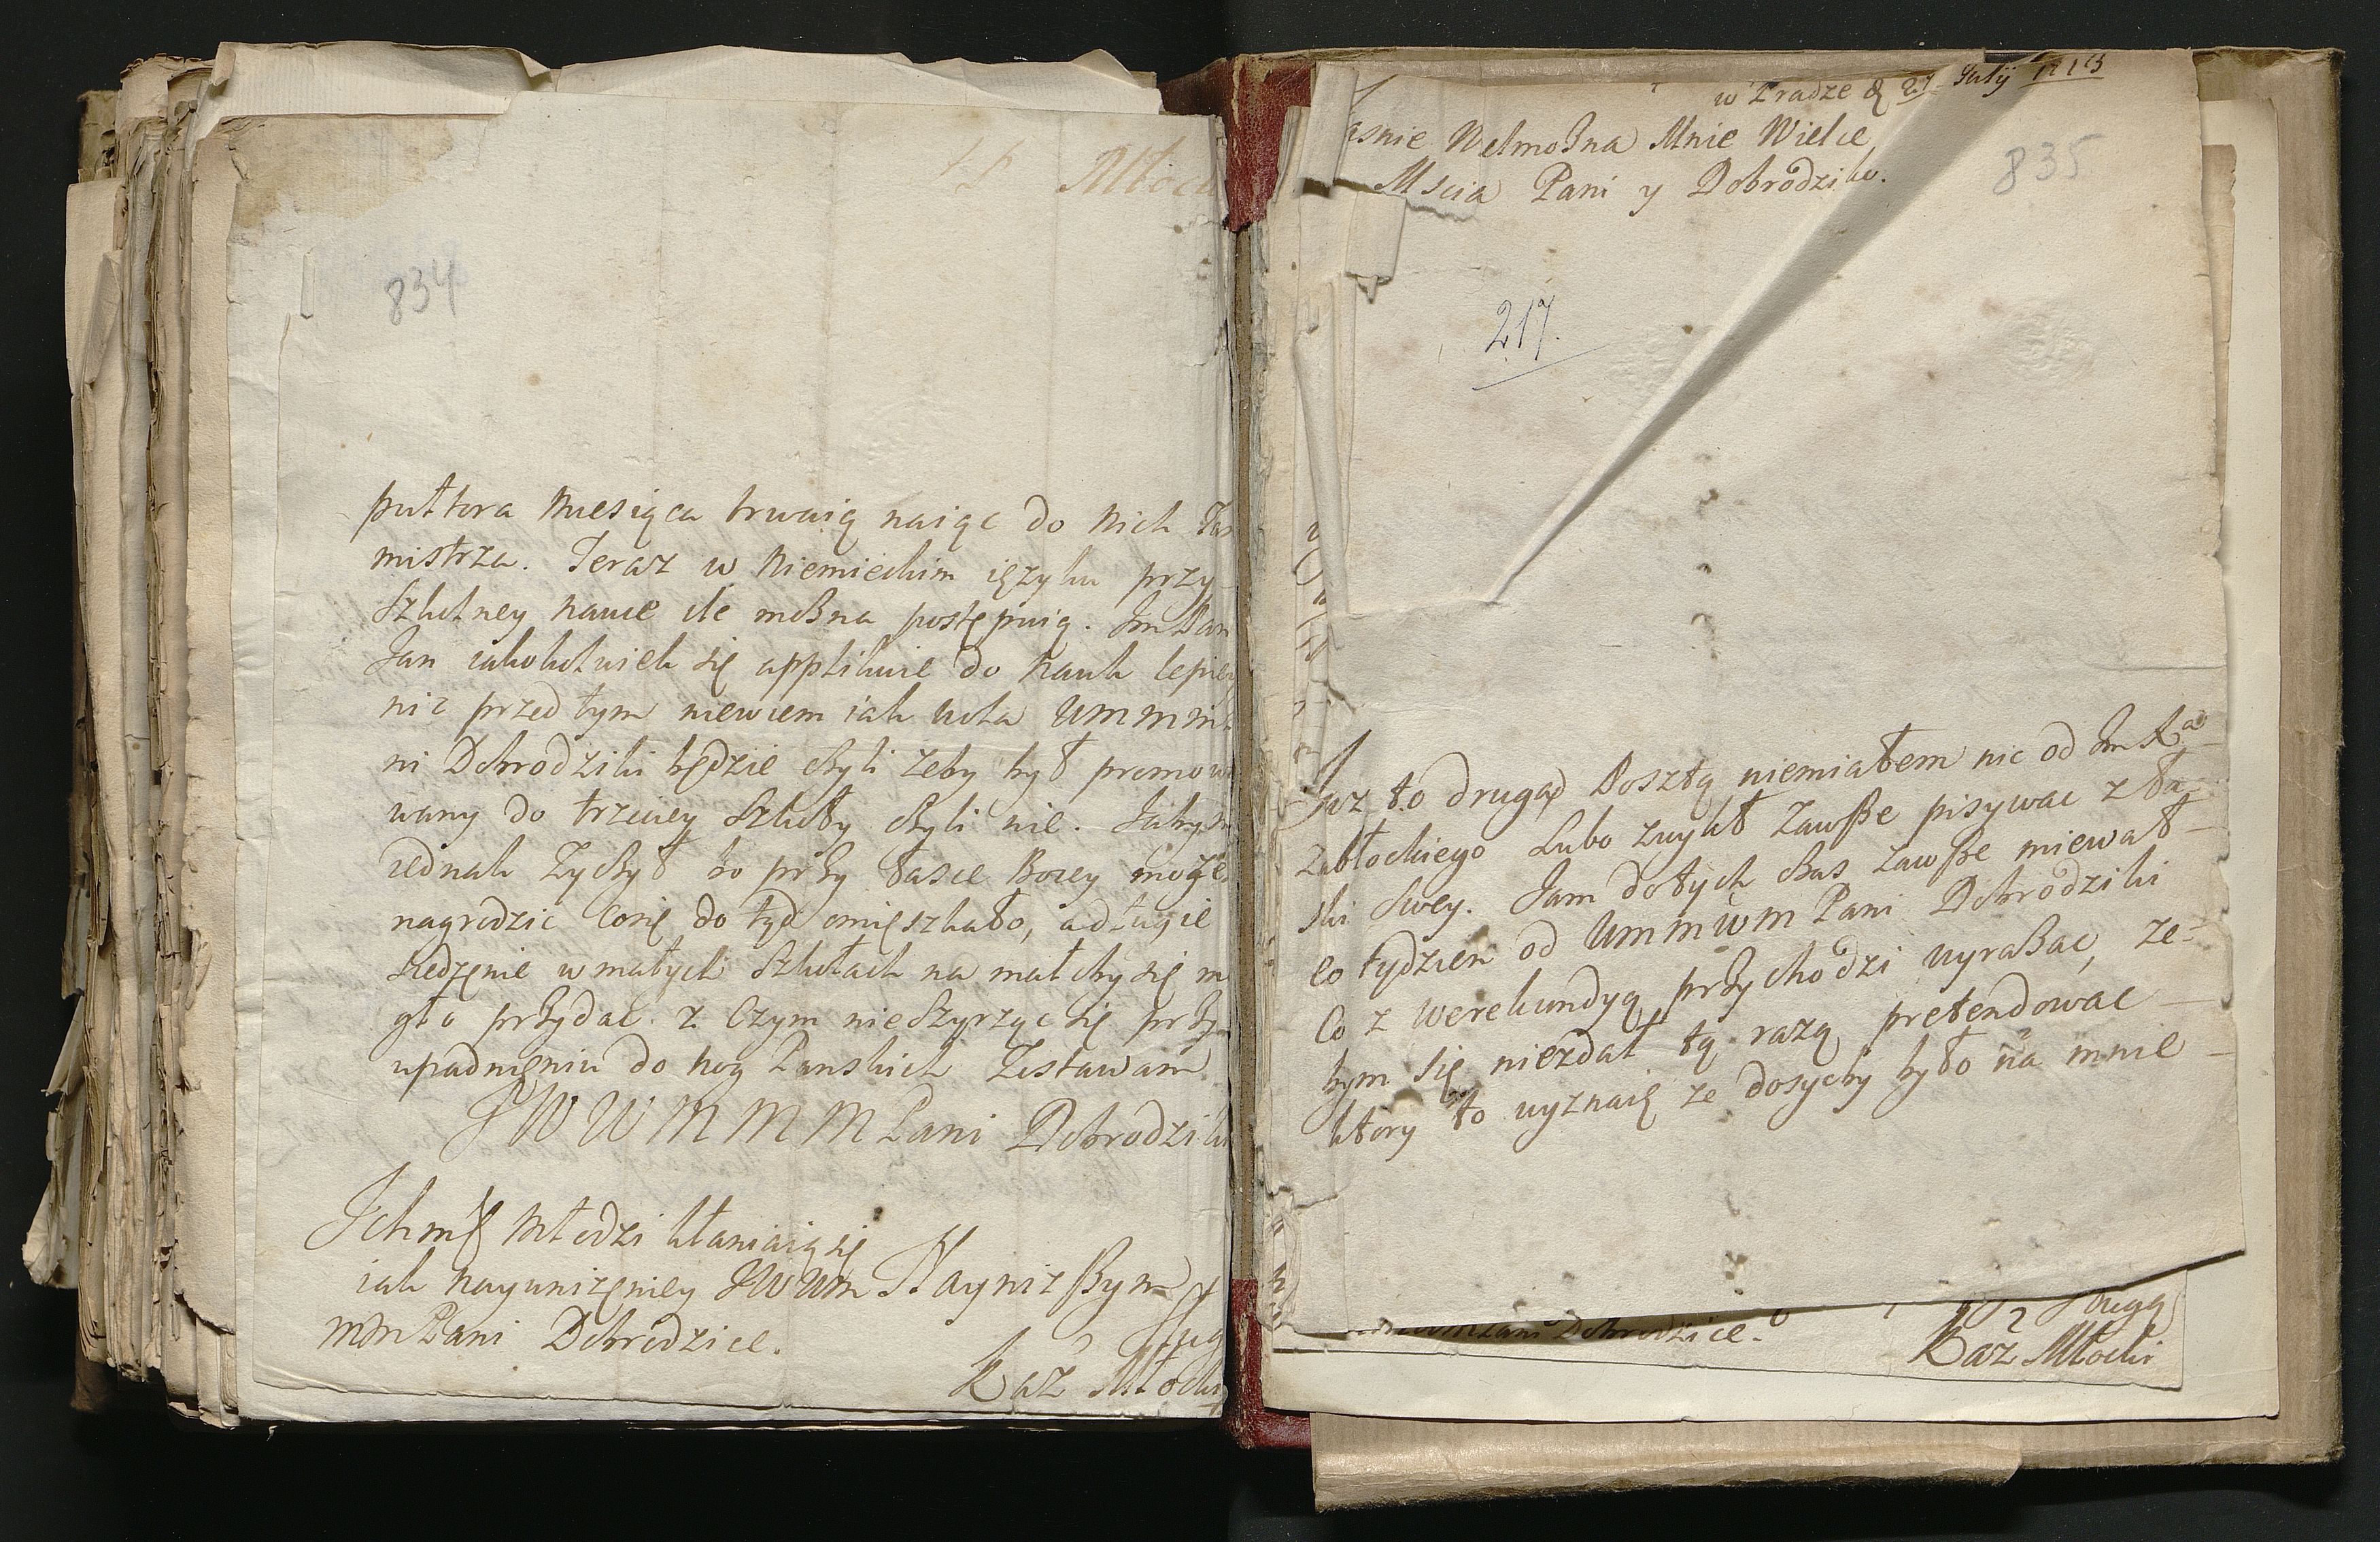 Młoc
834
pułtora Miesiąca trwaią naiąc do nich
mistrza. Teraz w Niemieckim ięzyku przy
Szkolney nauce ile mozna postępuią. Im Pan
Jan iakokolwiek się applikuie do nauk lepiey
niz przed tym niewiem iak wola
ni Dobrodziki będzie czyli zeby był promowo
wany do trzeciey Szkoły czyli nie. Jabym
iednak zyczył bo przy łasce Bozey moze
nagrodzic cosię do tyd omięszkało, a długie
siedzęnie w małych Szkołach na małoby się m
gło przydac. z Czym nieszyrząc się przy
upadnięniu do nog Panskich Zostawam
J W W M M M Pani Dobrodziki
Ichmć Młodzi kłaniaią się
iak nayunizęniey JWWm Nayniz szym
MM Pani Dobrodzice.
Sług
Kaz Młocki
w Pradze d 27 Julij
asnie Welmozna Mnie Wielce
Mscia Pani y Dobrodziko.
835
217.
Juz to drugą Posztą niemiałem nic od Im Xa
Zabłockiego Lubo zwykł zawsze pisywac z ła
ski swey. Jam dotych czas zawsze miewał
co tydzien od Ummwm Pani Dobrodziki
Co z werekundyą przychodzi wyrazac, ze=
bym się niezdał tą razą pretendowac
ktory to wyznaię ze dosycby było na mnie
Pani Dobrodzice.
Sługą
Kaz Młocki